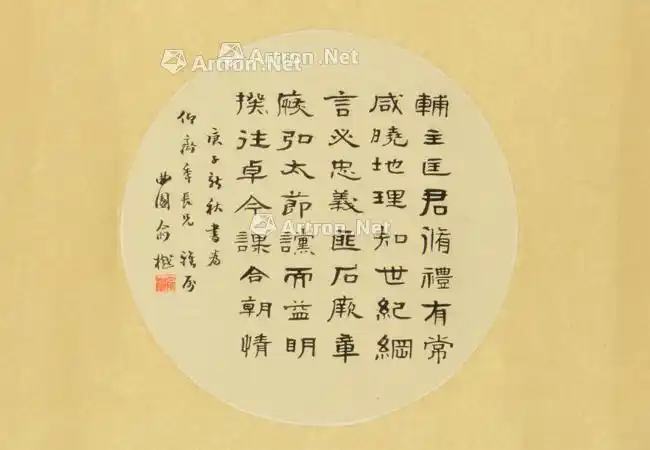 輔主匡君脩禮有常
咸曉地理知世紀綱
言必忠義匪石厥章
恢弘太節讜而益明
揆往卓今謀合朝情
庚子新秋書為
仰齋年長兄雅屬
曲園俞樾
Artron.Net
Artron.Net
Artron.Net